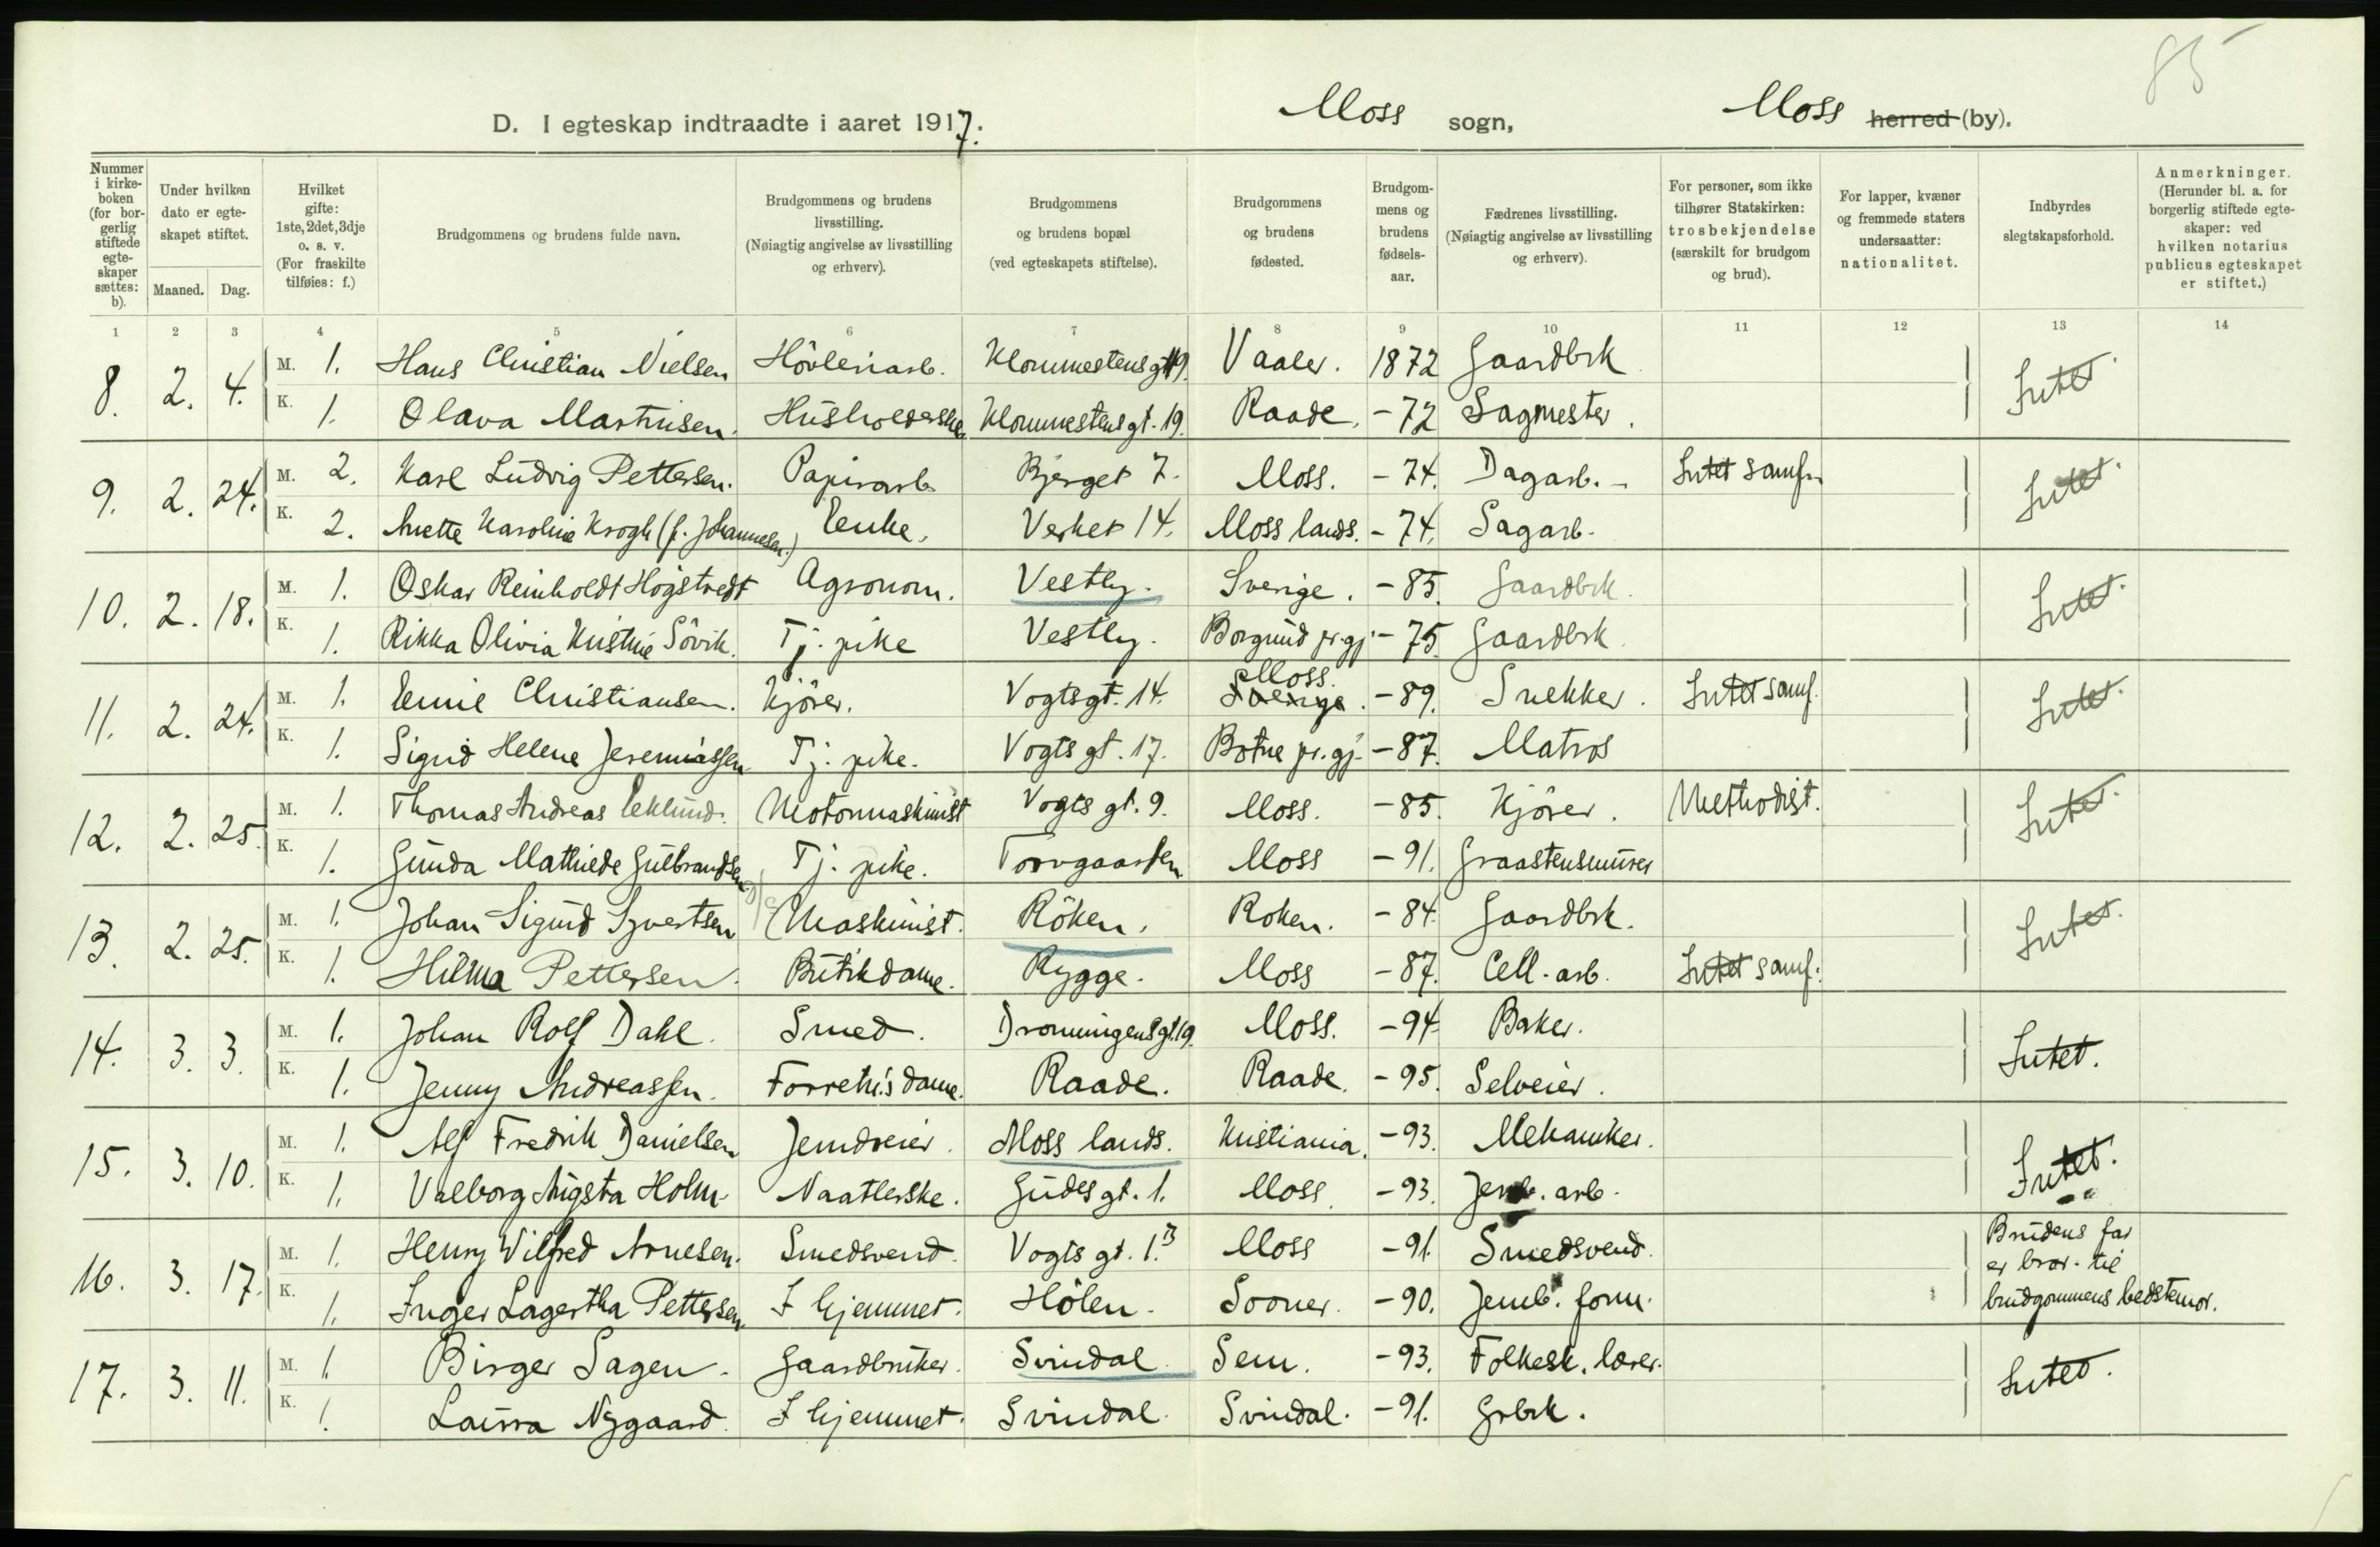 85
D. I egteskap indtraadte i aaret 1917. Moss sogn, Moss herred (by).
Nummer i kirkeboken (for borgerlig stiftede egteskaper sættes: b). | Under hvilken dato er egteskapet stiftet. Maaned. Dag. | Hvilket gifte: 1ste, 2det, 3dje o. s. v. (For fraskilte tilføies: f.) | Brudgommens og brudens fulde navn. | Brudgommens og brudens livsstilling. (Nøiagtig angivelse av livsstilling og erhverv). | Brudgommens og brudens bopæl (ved egteskapets stiftelse). | Brudgommens og brudens fødested. | Brudgommens og brudens fødselsaar. | Fædrenes livsstilling. (Nøiagtig angivelse av livsstilling og erhverv). | For personer, som ikke tilhører Statskirken: trosbekjendelse (særskilt for brudgom og brud). | For lapper, kvæner og fremmede staters undersaatter: nationalitet. | Indbyrdes slegtskapsforhold. | Anmerkninger. (Herunder bl. a. for borgerlig stiftede egteskaper: ved hvilken notarius publicus egteskapet er stiftet.)
1 2 3 4 5 6 7 8 9 10 11 12 13 14
8. 2. 4. M. 1. Hans Christian Nielsen Hövleriarb. Klommestensgt 19. Vaaler. 1872 Gaardbrk Intet
K. 1. Olava Martinsen. Husholderske Klommestensgt. 19. Raade. -72 Sagmester.
9. 2. 24. M. 2. Karl Ludvig Pettersen. Papirarb. Bjerget 7. Moss. -74. Dagarb. Intet samf. Intet.
K. 2. Anette Karoline Krogh (f. Johannesen.) Enke. Verket 14. Moss lands. -74. Sagarb.
10. 2. 18. M. 1. Oskar Reinholdt Högstvedt Agronom. Vestby. Sverige. -85. Gaardbrk. Intet.
K. 1. Rikka Olivia Kristine Sövik. Tj. pike Vestby. Borgund pr.gj. -75. Gaardbrk.
11. 2. 24. M. 1. Emil Christiansen. Kjörer. Vogtsgt. 14. Moss. Sverige. -89. Snekker. Intet samf. Intet.
K. 1. Sigrid Helene Jeremiassen Tj. pike. Vogts gt. 17. Botne pr.gj. -87. Matros
12. 2. 25. M. 1. Thomas Andreas Eklund. Motormaskinist Vogts gt. 9. Moss. -85. Kjörer. Methodist. Intet.
K. 1. Gunda Mathilde Gulbrandsen Tj. pike. Torvgaarden Moss -91. Graastensmurer
13. 2. 25. M. 1. Johan Sigurd Syvertsen Maskinist. Röken. Roken. -84. Gaardbrk. Intet.
K. 1. Hilma Pettersen. Butikdame. Rygge. Moss -87. Cell. arb. Intet samf.
14. 3. 3. M. 1. Johan Rolf Dahl. Smed. Dronningensgt. 19. Moss. -94. Baker. Intet.
K. 1. Jenny Andreassen. Forretn.s dame. Raade. Raade. -95. Selveier.
15. 3. 10. M. 1. Alf Fredrik Danielsen Jerndreier. Moss lands. Kristiania. -93. Mekaniker. Intet.
K. 1. Valborg Augsta Holm. Naatlerske. Gudes gt. 1. Moss. -93. Jernb. arb.
16. 3. 17. M. 1. Henry Wilfred Arnesen. Smedsvend. Vogts gt. 1.B Moss -91. Smedsvend. Brudens far
er bror til
K. 1. Inger Lagertha Pettersen I hjemmet. Hölen. Sooner. -90. Jernb. form. brudgommens bedstemor.
17. 3. 11. M. 1. Birger Sagen. Gaardbruker. Svindal Sem. -93. Folkesk. lærer. Intet.
K. 1. Laura Nygaard. I hjemmet. Svindal. Svindal. -91. Grbrk.